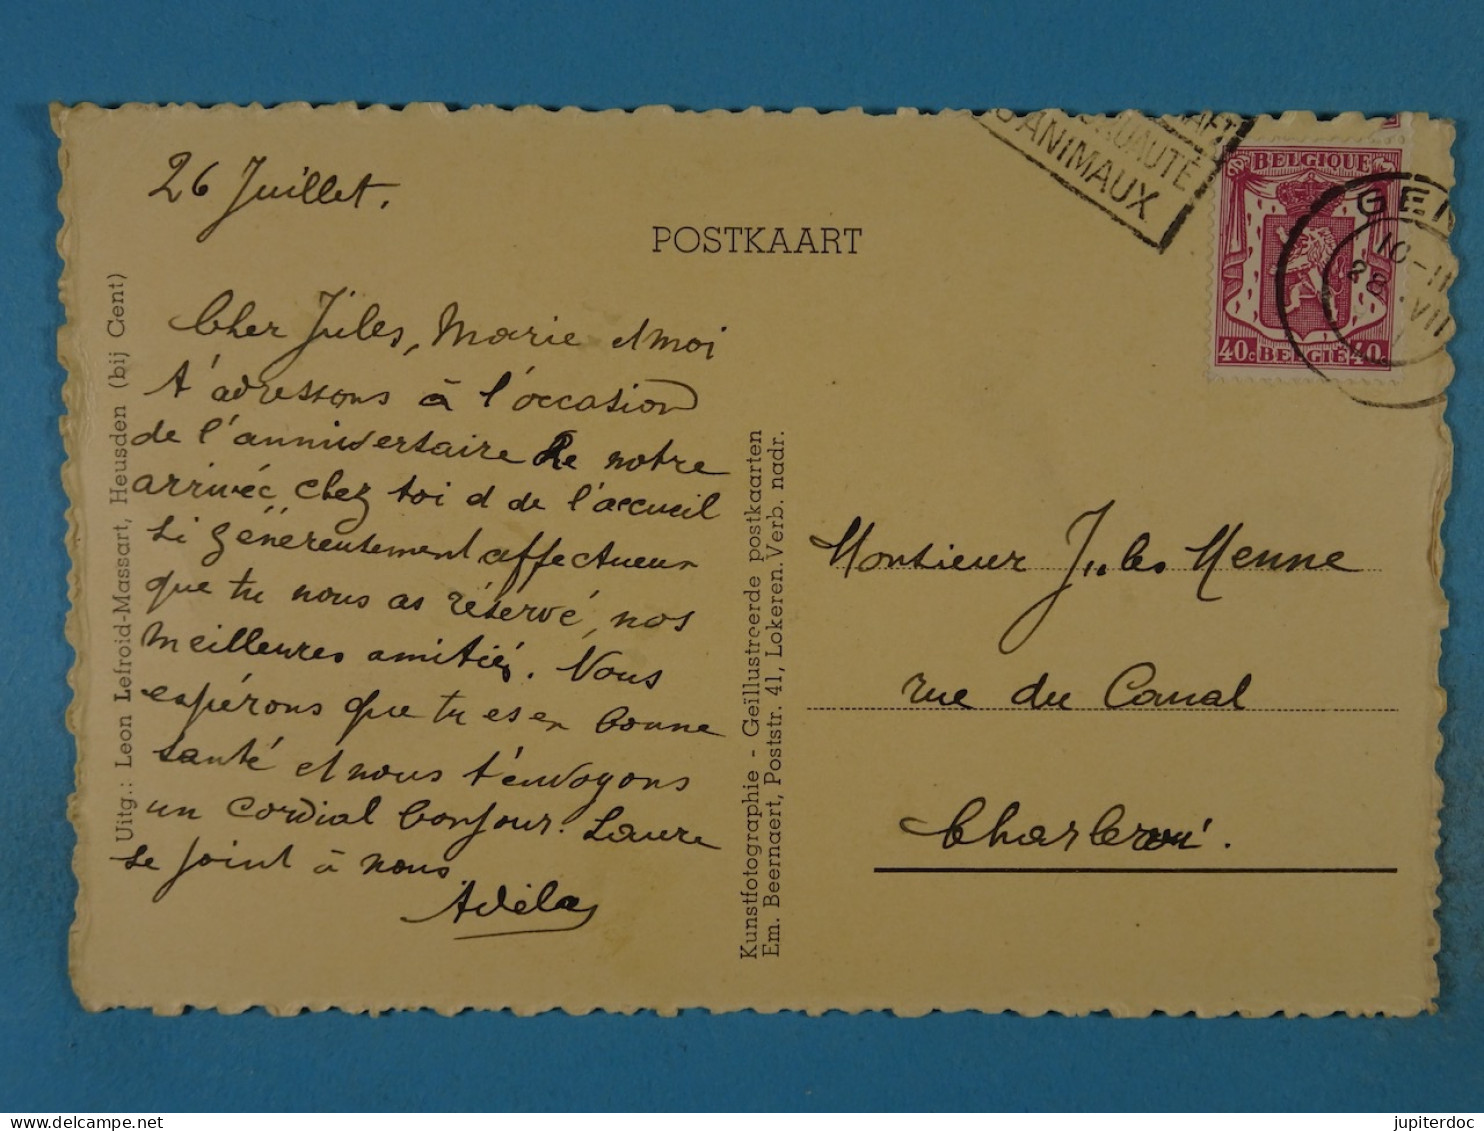 26 Juillet.
POSTKAART
Cher Jules, Marie et moi
t'adressons à l'occasion
de l'anniversaire de notre
arrivée chez toi et de l'accueil
si généreusement affectueux
que tu nous as réservé, nos
meilleures amitiés. Nous
espérons que tu es en bonne
santé et nous t'envoyons
un cordial bonjour. Laure
se joint à nous
Adèle
Uitg.: Leon Lefroid-Massart, Heusden (bij Gent)
Kunstfotographie - Geïllustreerde postkaarten
Em. Beernaert, Poststr. 41, Lokeren. Verb. nadr.
D'ANIMAUX
BELGIQUE
40c BELGIË 40c
GEN
10-11
28 VII
Monsieur Jules Menne
rue du Canal
Charleroi.
jupiterdoc
delcampe.net